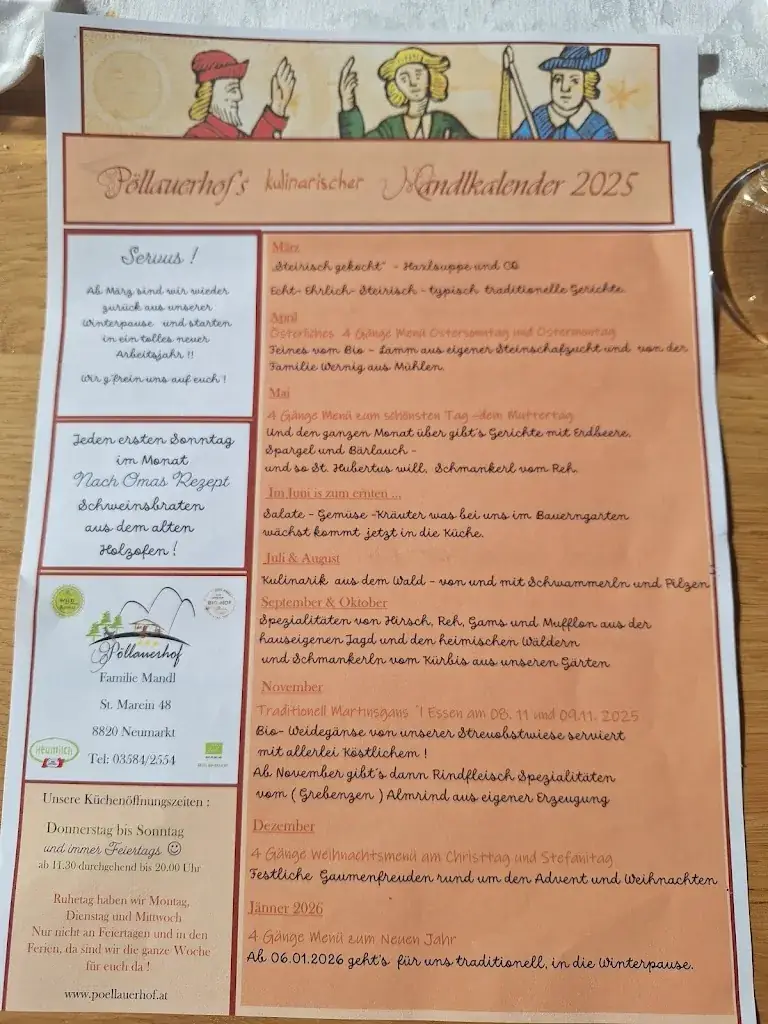 Pöllauerhof's kulinarischer Mandlkalender 2025
Servus !
Ab März sind wir wieder
zurück aus unserer
Winterpause und starten
in ein tolles neuer
Arbeitsjahr !!
Wir g'frein uns auf euch !
Jeden ersten Sonntag
im Monat
Nach Omas Rezept
Schweinsbraten
aus dem alten
Holzofen !
Pöllauerhof
Familie Mandl
St. Marein 48
8820 Neumarkt
Tel: 03584/2554
HEUMILCH
Unsere Küchenöffnungszeiten :
Donnerstag bis Sonntag
und immer Feiertags ☺
ab 11.30 durchgehend bis 20.00 Uhr
Ruhetag haben wir Montag,
Dienstag und Mittwoch
Nur nicht an Feiertagen und in den
Ferien, da sind wir die ganze Woche
für euch da !
www.poellauerhof.at
März
„Steirisch gekocht" - Haxlsuppe und CO
Echt- Ehrlich- Steirisch - typisch traditionelle Gerichte.
April
Österliches 4 Gänge Menü Ostersonntag und Ostermontag
Feines vom Bio - Lamm aus eigener Steinschafzucht und von der
Familie Wernig aus Mühlen.
Mai
4 Gänge Menü zum schönsten Tag -dem Muttertag
Und den ganzen Monat über gibt's Gerichte mit Erdbeere,
Spargel und Bärlauch -
und so St. Hubertus will, Schmankerl vom Reh.
Im Juni is zum ernten ...
Salate - Gemüse -Kräuter was bei uns im Bauerngarten
wächst kommt jetzt in die Küche.
Juli & August
Kulinarik aus dem Wald - von und mit Schwammerln und Pilzen
September & Oktober
Spezialitäten von Hirsch, Reh, Gams und Mufflon aus der
hauseigenen Jagd und den heimischen Wäldern
und Schmankerln vom Kürbis aus unseren Gärten
November
Traditionell Martinsgans ´l Essen am 08. 11 und 09.11. 2025
Bio- Weidegänse von unserer Streuobstwiese serviert
mit allerlei Köstlichem !
Ab November gibt's dann Rindfleisch Spezialitäten
vom ( Grebenzen ) Almrind aus eigener Erzeugung
Dezember
4 Gänge Weihnachtsmenü am Christtag und Stefanitag
Festliche Gaumenfreuden rund um den Advent und Weihnachten
Jänner 2026
4 Gänge Menü zum Neuen Jahr
Ab 06.01.2026 geht's für uns traditionell, in die Winterpause.